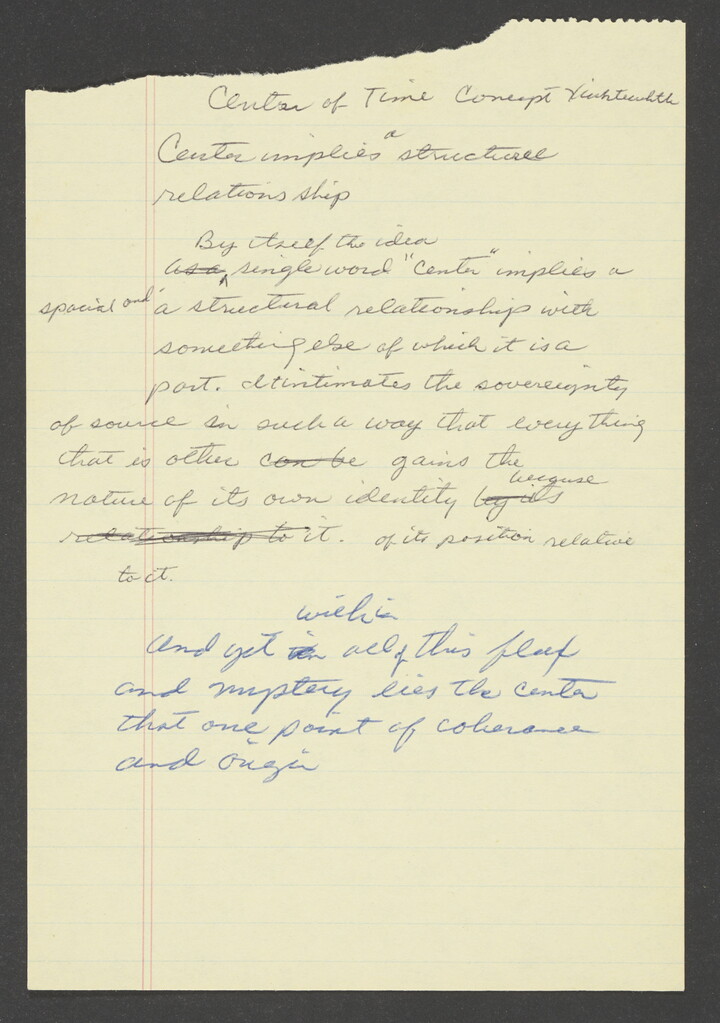 Center of Time Concept
a
Center implies structural
relationship
By itself the idea
as a single word "center" implies a
spacial and a structural relationship with
something else of which it is a
part. It intimates the sovereignty
of source in such a way that everything
that is other can be gains the
because
nature of its own identity by its
relationship to it. of its position relative
to it.
within
and yet in all of this flux
and mystery lies the center
that one point of coherance
and origin